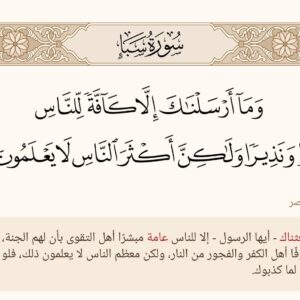 سُورَةُ سَبَإٍ
وَمَآ أَرْسَلْنَـٰكَ إِلَّا كَآفَّةً لِّلنَّاسِ
وَنَذِيرًا وَلَـٰكِنَّ أَكْثَرَ ٱلنَّاسِ لَا يَعْلَمُونَ
- أيها الرسول - إلا للناس عامة مبشرًا أهل التقوى بأن لهم الجنة،
أهل الكفر والفجور من النار، ولكن معظم الناس لا يعلمون ذلك، فلو
لما كذبوك.